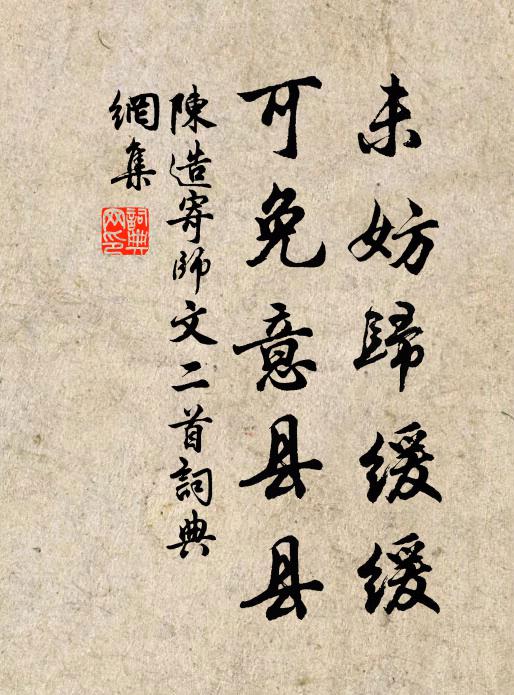 未妨歸緩緩
可免意县县
陳造寄師文二首詞典
網集
詞典網印